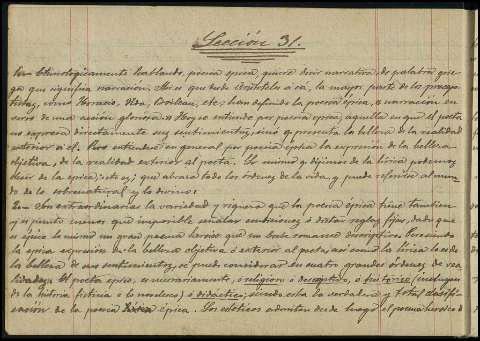 Sección 31.
Etimológicamente hablando, poesía épica, quiere decir narrativa, de palabra grie-
ga que significa narración. Así es que desde Aristóteles acá, la mayor parte de los precep-
tistas, como Horacio, Vida, Boileau, etc. han definido la poesía épica, la narración en
verso de una acción gloriosa. Hoy se entiende por poesía épica; aquella en que el poeta
no expresa directamente sus sentimientos, sino q. presenta la belleza de la realidad
exterior á él. Pero entiéndese en general por poesía épica la expresión de la belleza
objetiva, de la realidad exterior al poeta. Lo mismo q. dijimos de la lírica podemos
decir de la épica; esto es; que abraza todos los órdenes de la vida, y puede referirse al mun-
do de lo sobrenatural y lo divino.
extraordinaria la variedad y riqueza que la poesía épica tiene tambien
y si punto menos que imposible señalar sus dictar reglas fijas, dado que
es épico lo mismo un gran poema heroico que un breve romance descriptivo.
la épica expresión de la belleza objetiva ó exterior al poeta, así como la lírica lo es de
la belleza de sus sentimientos, se puede considerar en cuatro grandes órdenes de rea-
lidades. El poeta épico, es necesariamente, ó religioso ó descriptivo, ó histórico (incluyen-
do la historia fictiva ó lo novelesco) ó didáctico; siendo esta la verdadera y total clasifi-
cación de la poesía épica. Los estéticos admiten desde luego el poema heroico ó